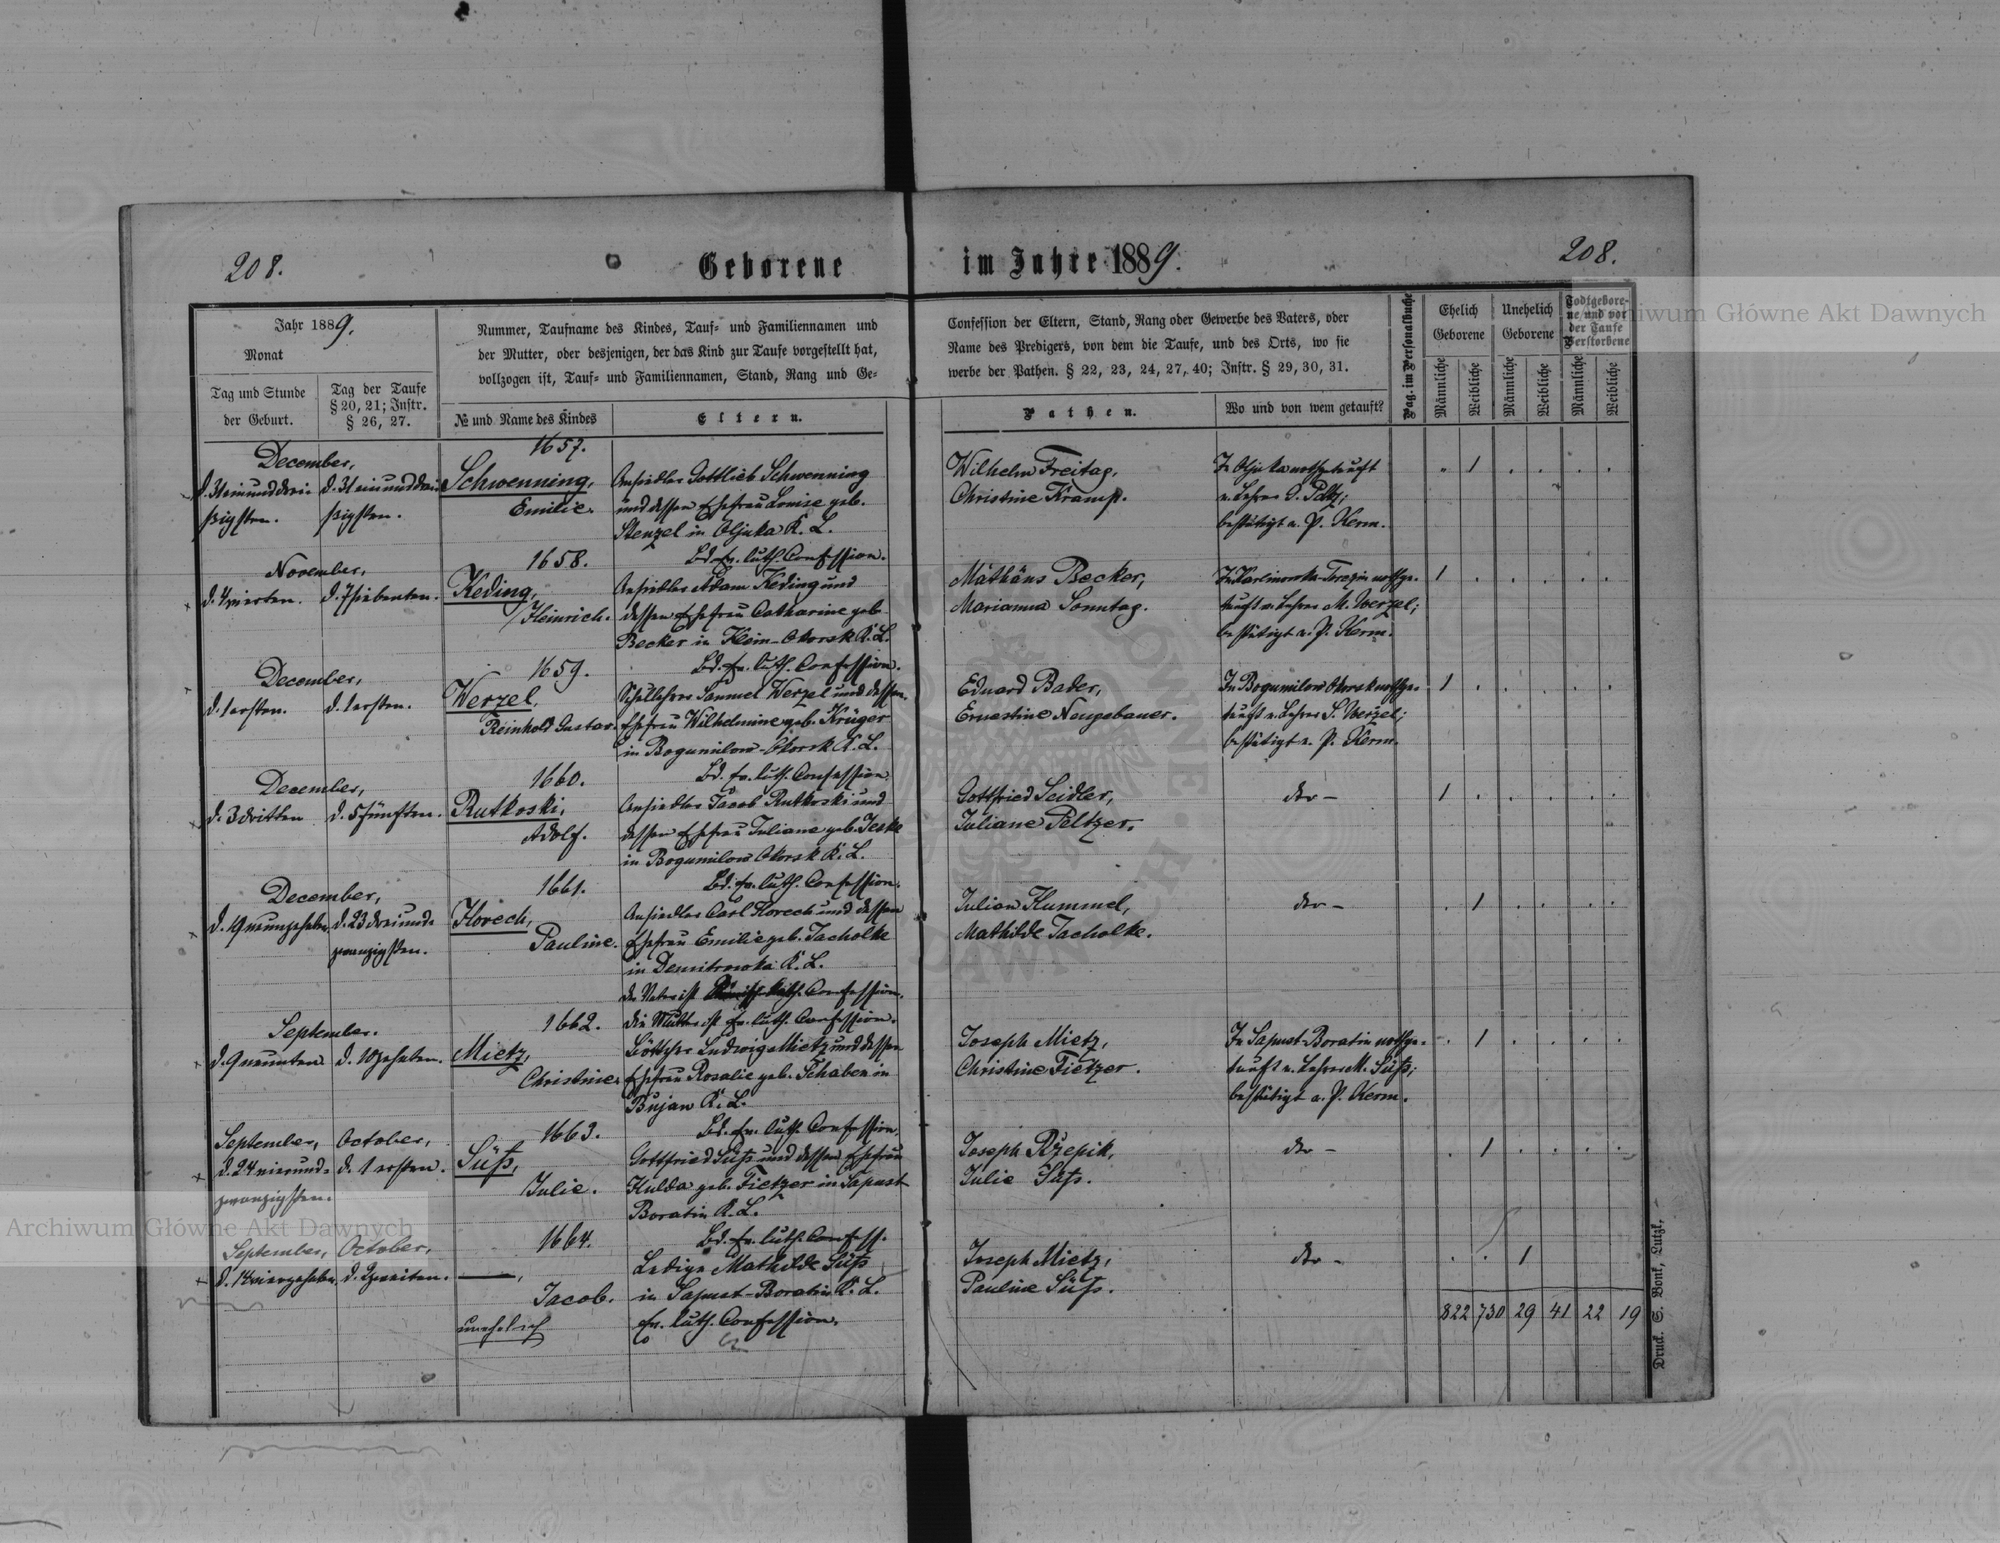 208.
Geborene
im Jahre 1889.
208.
Jahr 1889.
Monat
Tag und Stunde
der Geburt.
Tag der Taufe
§ 20, 21; Instr.
§ 26, 27.
Nummer, Taufname des Kindes, Tauf- und Familiennamen und
der Mutter, oder desjenigen, der das Kind zur Taufe vorgestellt hat,
vollzogen ist, Tauf- und Familiennamen, Stand, Rang und Ge-
№ und Name des Kindes
Eltern.
Confession der Eltern, Stand, Rang oder Gewerbe des Vaters, oder
Name des Predigers, von dem die Taufe, und des Orts, wo sie
werbe der Pathen. § 22, 23, 24, 27, 40; Instr. § 29, 30, 31.
Pathen.
Wo und von wem getauft?
Pag. im Personalbuche
Ehelich
Geborene
Unehelich
Geborene
Todtgebore-
ne und vor
der Taufe
Verstorbene
Männliche
Weibliche
Männliche
Weibliche
Männliche
Weibliche
December,
d. 31 einunddrei-
ßigsten.
d. 31 einunddrei-
ßigsten.
1657.
Schwenning,
Emilie.
Ansiedler Gottlieb Schwenning
und dessen Ehefrau Louise geb.
Stenzel in Olyka K. L.
Bd. ev. luth. Confession.
Wilhelm Freitag,
Christine Kramp.
In Olyka nothgetauft
v. Lehrer
bestätigt v. P. Kerm.
1
November,
d. 4 vierten.
d. 7 siebenten.
1658.
Keding,
Heinrich.
Ansiedler Adam Keding und
dessen Ehefrau Catharine geb.
Becker in Klein-Okorsk K. L.
Bd. ev. luth. Confession.
Mathäus Becker,
Marianna Sonntag.
nothge-
tauft v. Lehrer M. Werzel;
bestätigt v. P. Kerm.
1
December,
d. 1 ersten.
d. 1 ersten.
1659.
Werzel,
Reinhold Gustav.
Schullehrer Samuel Werzel und dessen
Ehefrau Wilhelmine geb. Krüger
in Bogumilow-Okorsk K. L.
Bd. ev. luth. Confession.
Eduard Bader,
Ernestine Neugebauer.
In Bogumilow Okorsk nothge-
tauft v. Lehrer S. Werzel;
bestätigt v. P. Kerm.
1
December,
d. 3 dritten
d. 5 fünften.
1660.
Rutkoski,
Adolf.
Ansiedler Jacob Rutkoski und
dessen Ehefrau Juliane geb. Jeske
in Bogumilow Okorsk K. L.
Bd. ev. luth. Confession.
Gottfried Seidler,
Juliane Peltzer.
dto –
1
December,
d. 19 neunzehnten
d. 23 dreiund-
zwanzigsten.
1661.
Horech,
Pauline.
Ansiedler Carl Horech und dessen
Ehefrau Emilie geb. Tacholke
in Demitrowka K. L.
der Vater ist Römisch kath. Confession,
die Mutter ist ev. luth. Confession.
Julian Hummel,
Mathilde Tacholke.
dto –
1
September.
d. 9 neunten
d. 10 zehnten.
1662.
Mietz,
Christine.
Böttcher Ludwig Mietz und dessen
Ehefrau Rosalie geb. Schaben in
Bujan K. L.
Bd. ev. luth. Confession.
Joseph Mietz,
Christine Tietzer.
In Sapust-Boratin nothge-
tauft v. Lehrer M. Süß;
bestätigt v. P. Kerm.
1
September,
October,
d. 24 vierund-
zwanzigsten.
d. 1 ersten.
1663.
Süß,
Julie.
Gottfried Süß und dessen Ehefrau
Hulda geb. Tietzer in Sapust
Boratin K. L.
Bd. ev. luth. Confess.
Joseph Rzepik,
Julie Süß.
dto –
1
September,
October,
d. 14 vierzehnten
d. 2 zweiten.
1664.
Jacob.
unehelich
Ledige Mathilde Süß
in Sapust-Boratin K. L.
ev. luth. Confession.
Joseph Mietz,
Pauline Süß.
dto –
1
822 730 29 41 22 19
Druck. S. Bonk, Lutzk.
Archiwum Główne Akt Dawnych
Archiwum Główne Akt Dawnych